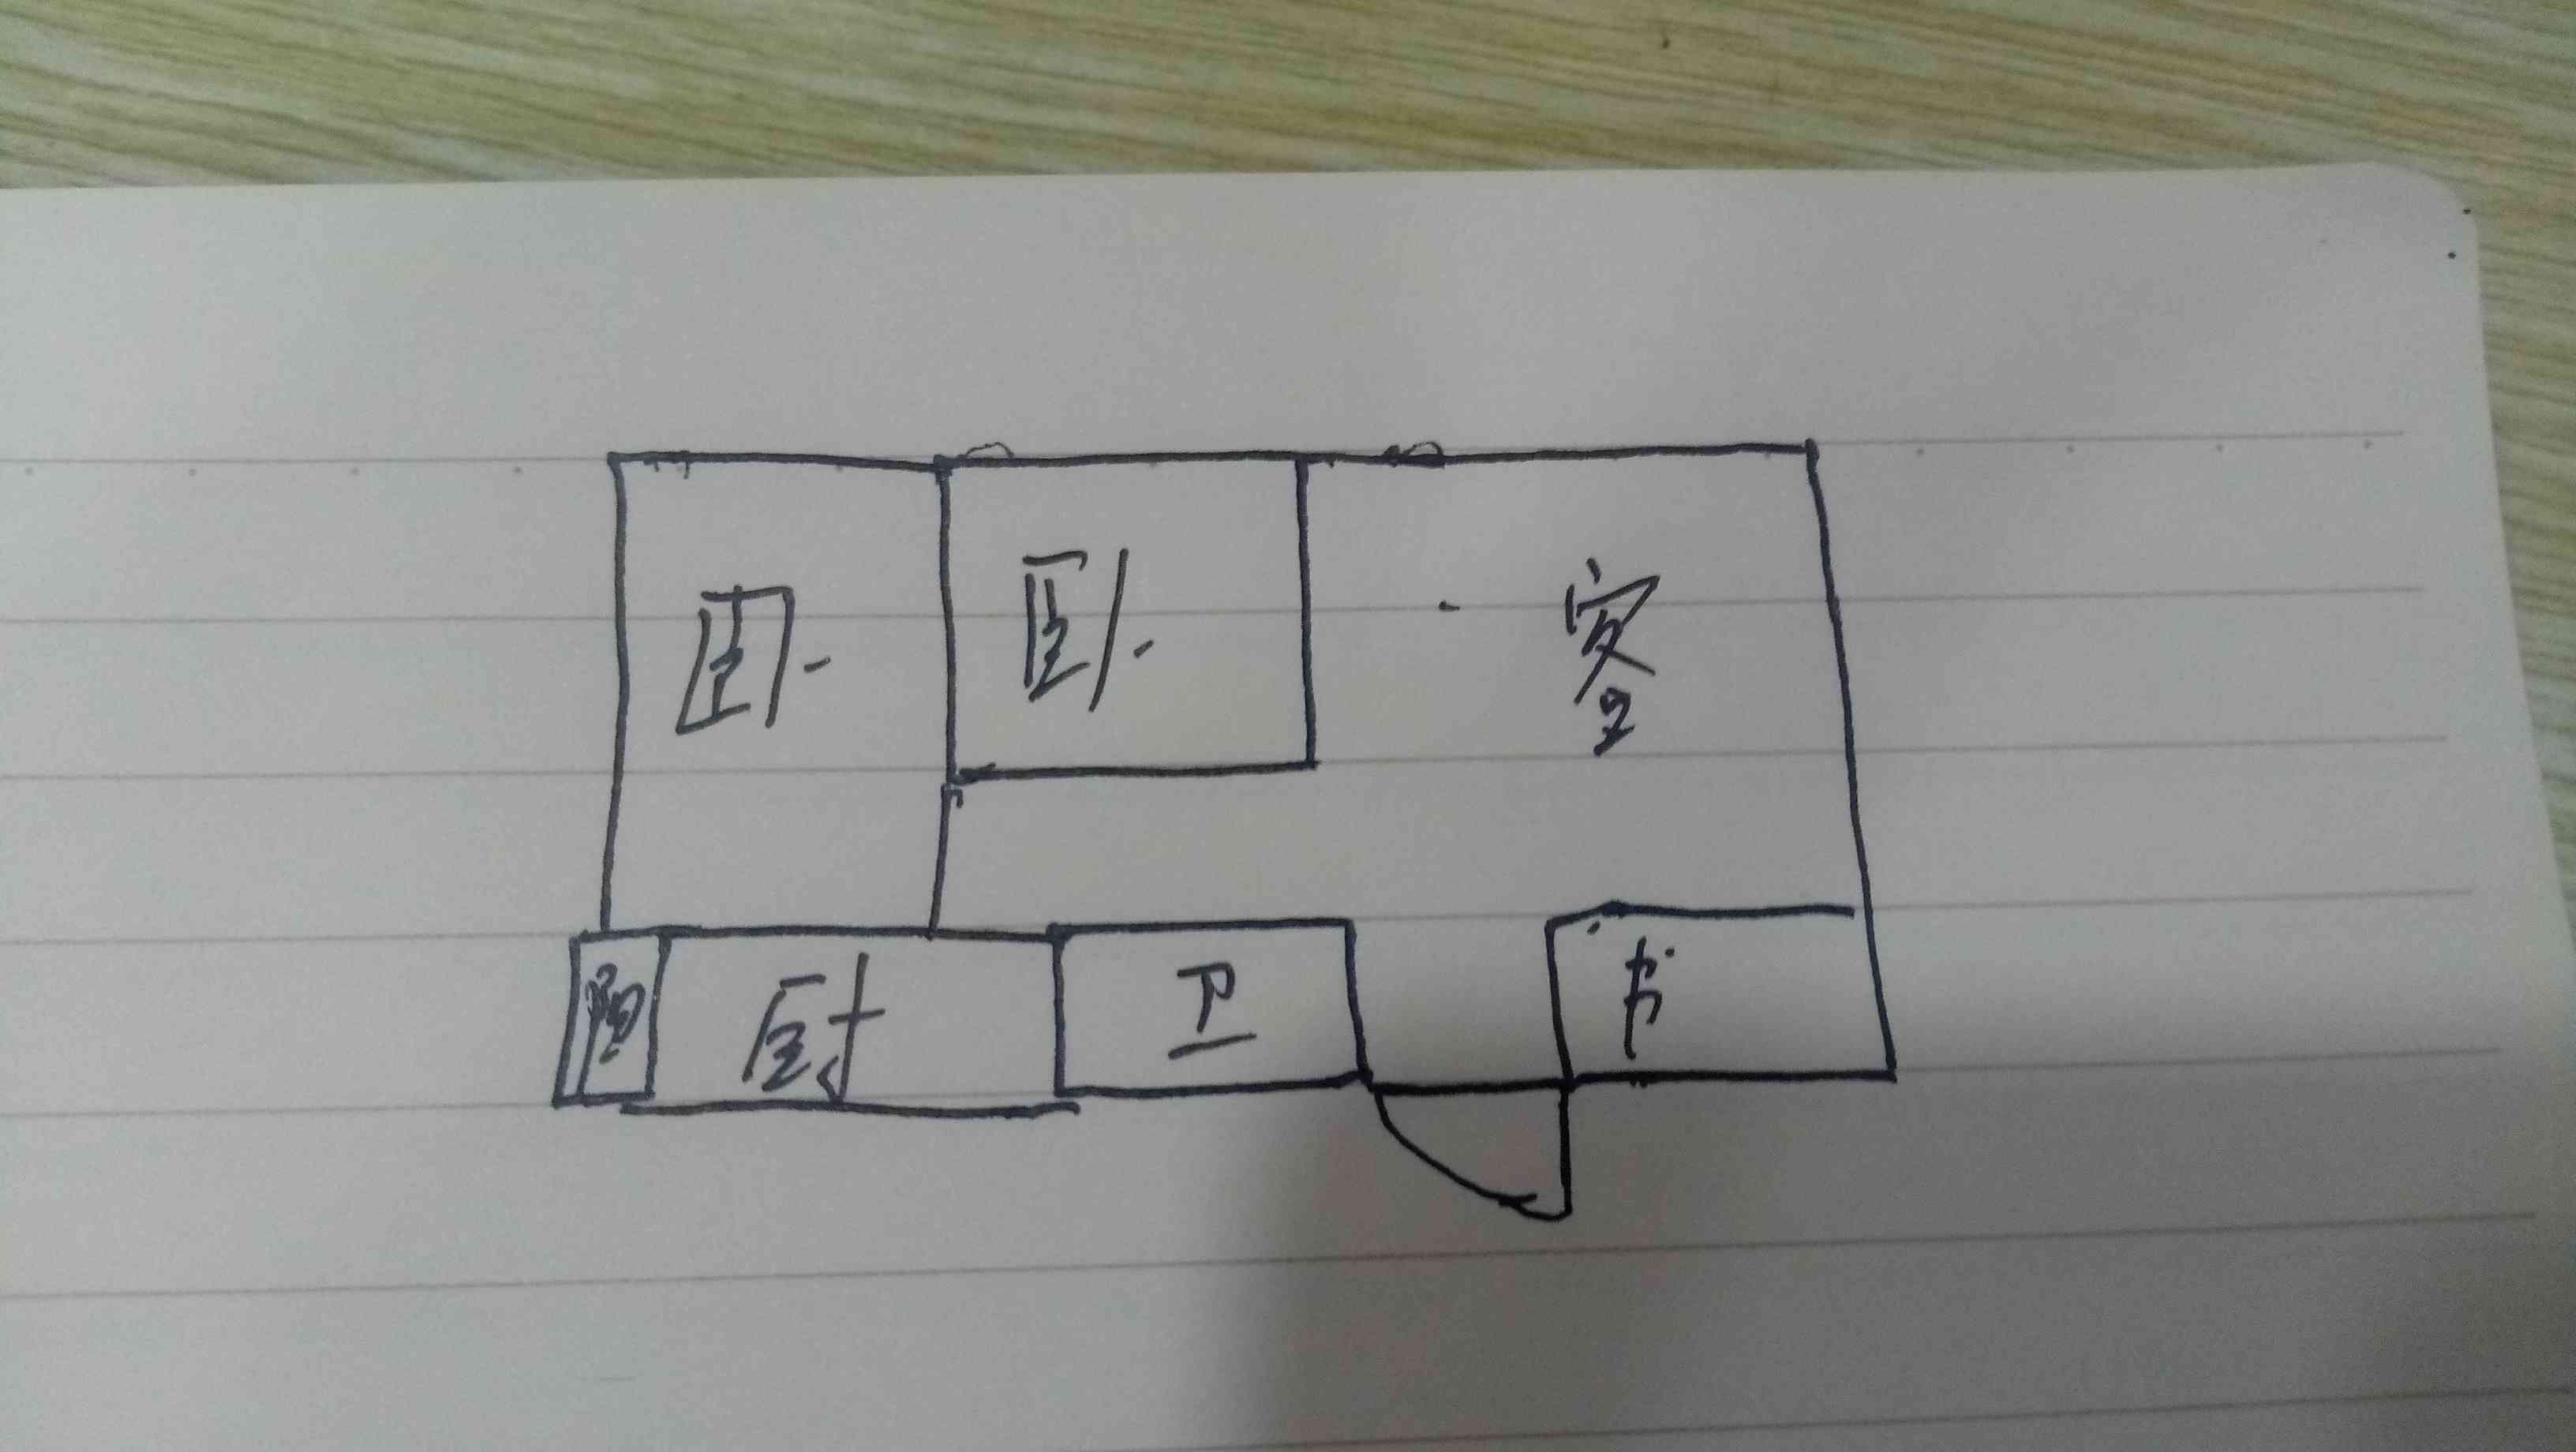 卧
卧
客
阳
厨
卫
书